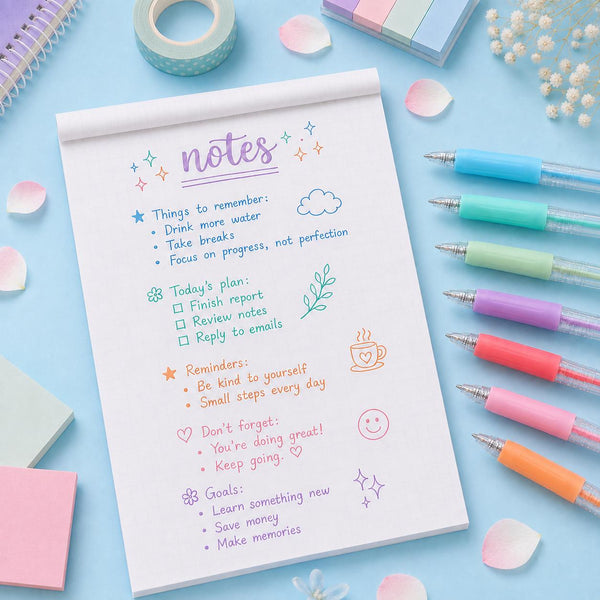 notes
Things to remember:
• Drink more water
• Take breaks
• Focus on progress, not perfection
Today's plan:
☐ Finish report
☐ Review notes
☐ Reply to emails
Reminders:
• Be kind to yourself
• Small steps every day
Don't forget:
• You're doing great!
• Keep going. ♡
Goals:
• Learn something new
• Save money
• Make memories